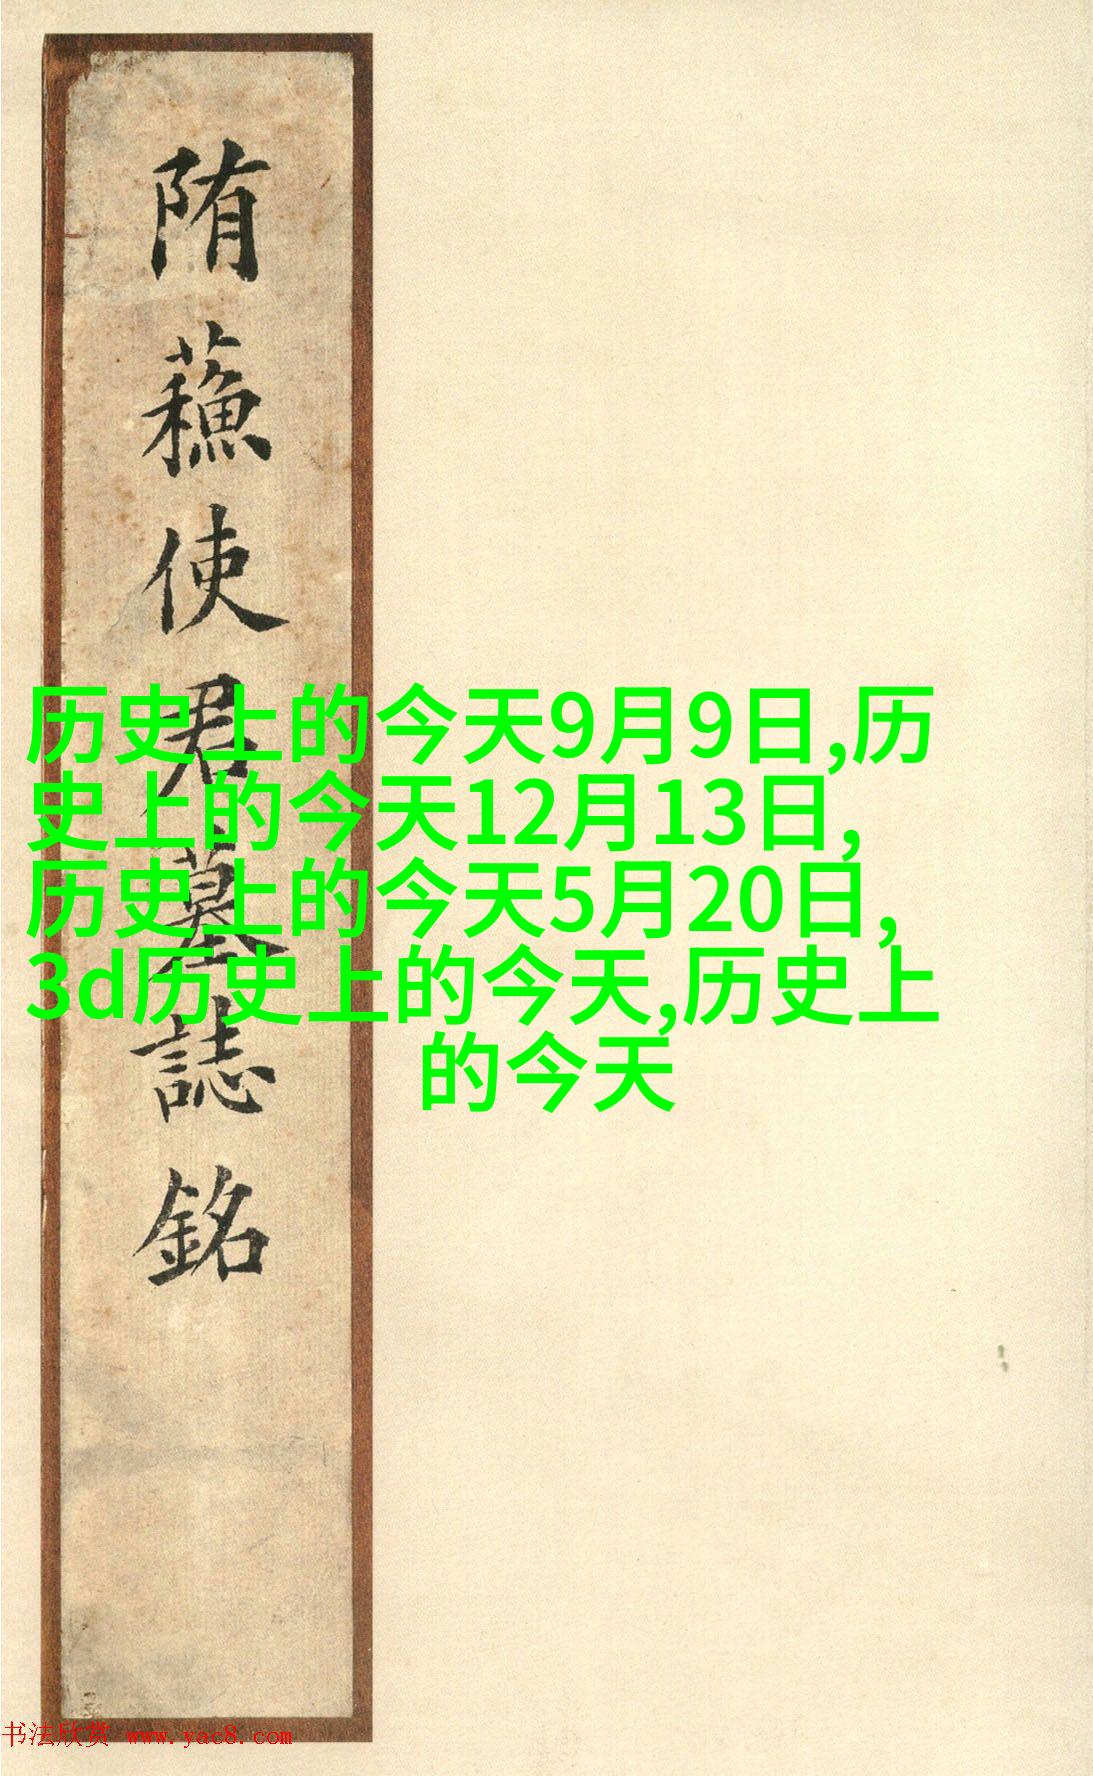 隋蘓使君墓誌銘
历史上的今天9月9日,历
史上的今天12月13日,
历史上的今天5月20日,
3d历史上的今天,历史上
的今天
书法欣赏 www.yac8.com